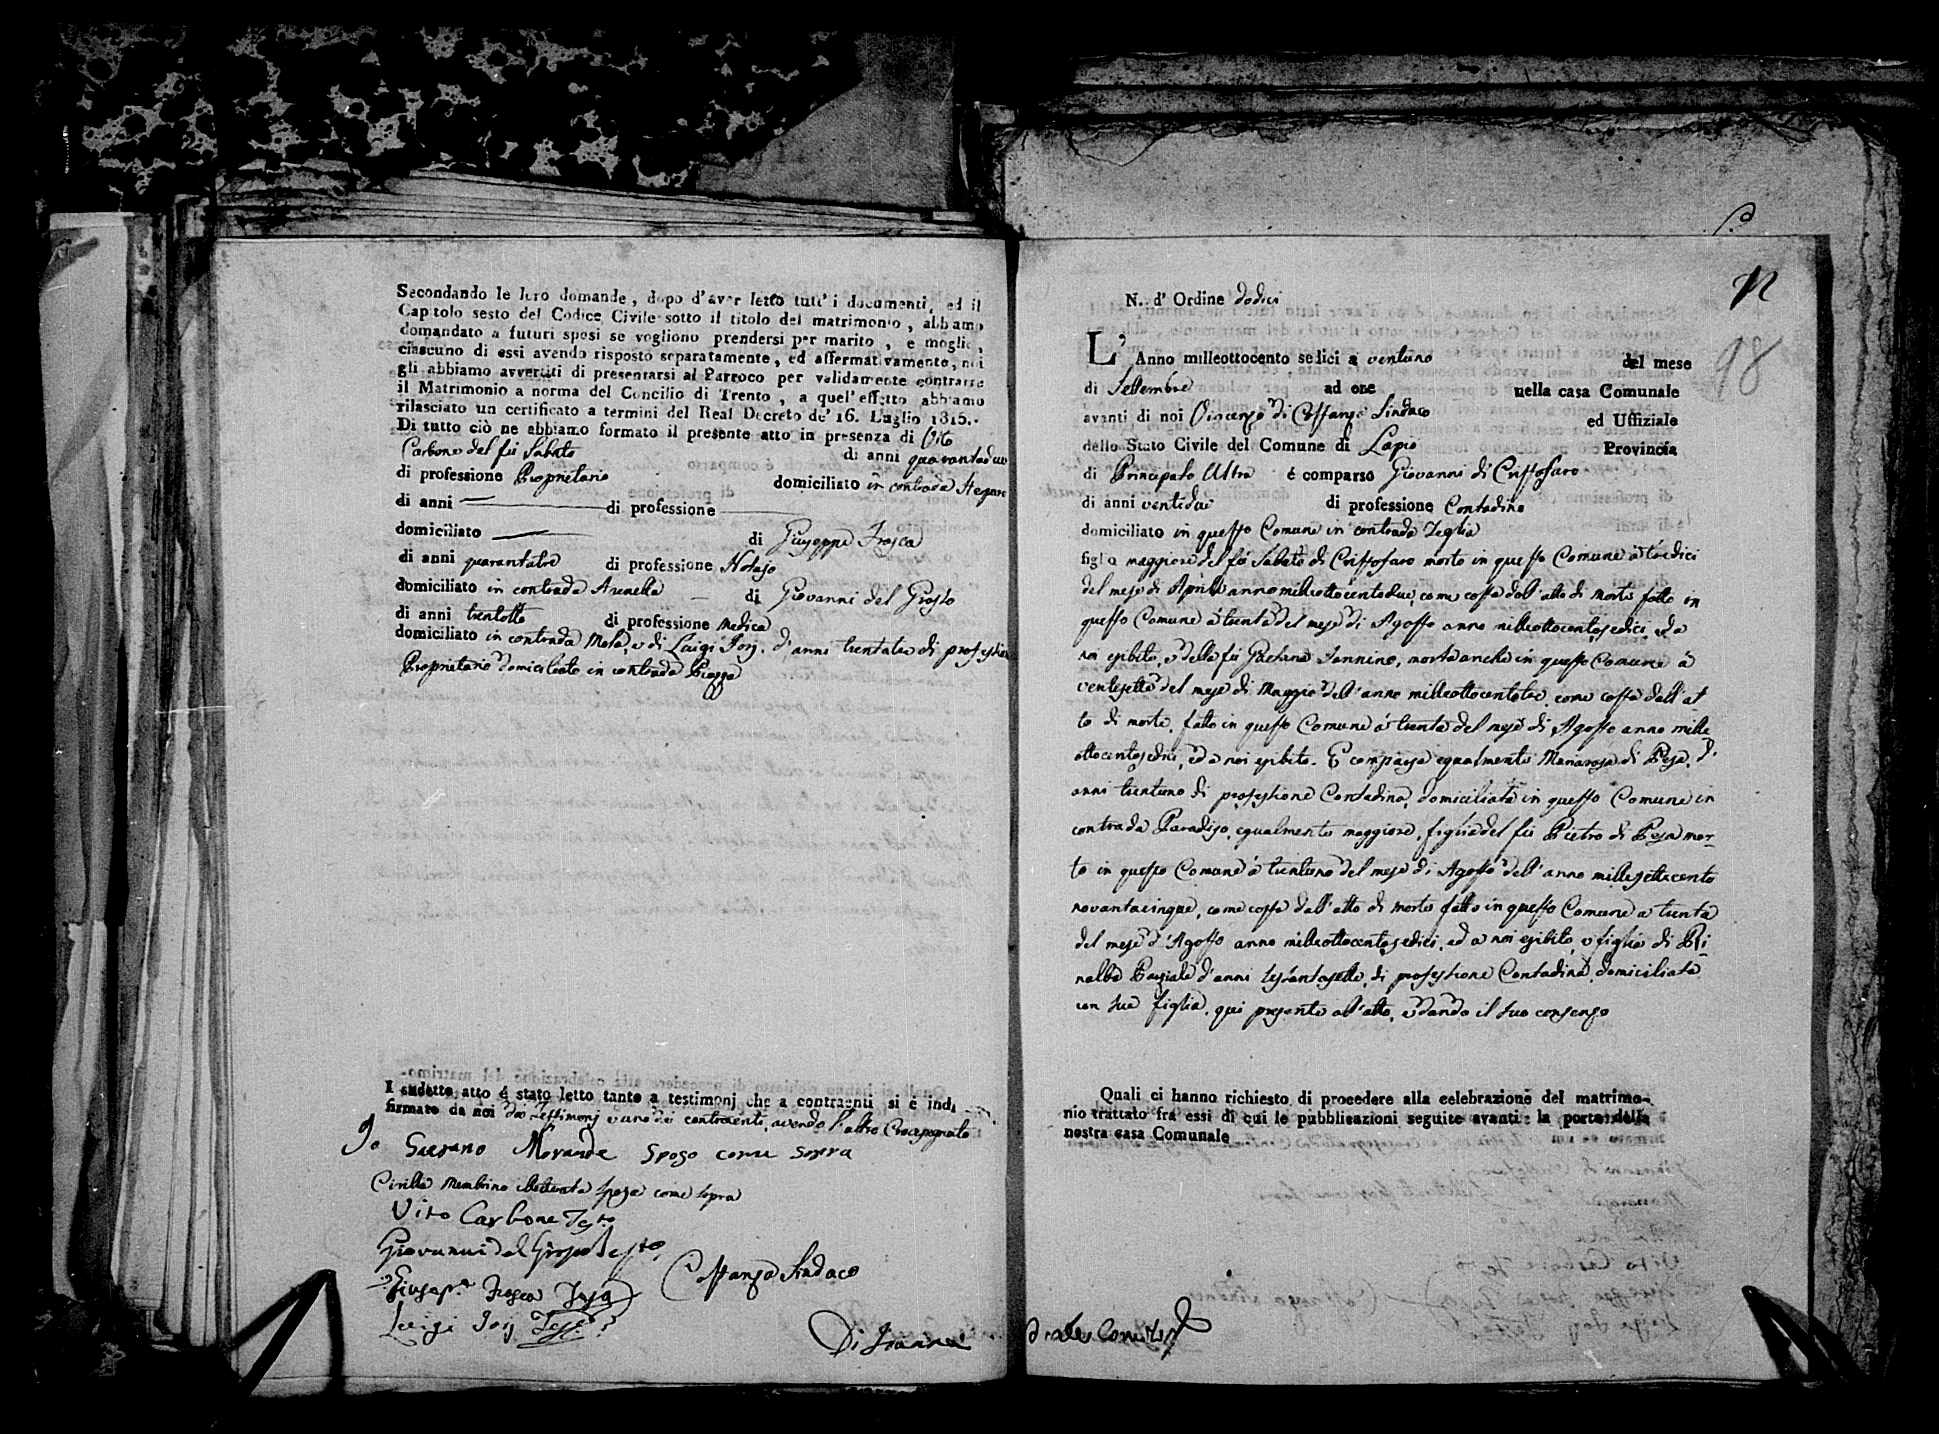 Secondando le loro domande, dopo d'aver letto tutt'i documenti, ed il
Capitolo sesto del Codice Civile sotto il titolo del matrimonio, abbiamo
domandato a futuri sposi se vogliono prendersi per marito, e moglie,
ciascuno di essi avendo risposto separatamente, ed affermativamente, noi
gli abbiamo avvertiti di presentarsi al Parroco per validamente contrarre
il Matrimonio a norma del Concilio di Trento, a quel'effetto abbiamo
rilasciato un certificato a termini del Real Decreto de' 16. Luglio 1815.
Di tutto ciò ne abbiamo formato il presente atto in presenza di Vito
Carbone del fù Sabato di anni quarantadue
di professione Proprietario domiciliato in contrada
di anni di professione
domiciliato di Giuseppe Frosca
di anni quarantatre di professione Notajo
domiciliato in contrada Arenella di Giovanni del Grosso
di anni trentotto di professione Medico
domiciliato in contrada e di Luigi d'anni di professione
Proprietario domiciliato in contrada Piazza
I sudetto atto é stato letto tanto a testimonj che a contraenti si è indi
firmato da noi testimonj e uno dei contraenti, avendo l'altro Crocesegnato
Io Gaetano Morande sposo come sopra
Cirilla Membrino illetterata sposa come sopra
Vito Carbone Testo
Giovanni del Grosso testo
Giusep. Frosca
Luigi
Costanzo Sindaco
12
98
N. d' Ordine dodici
L' Anno milleottocento sedici a ventuno del mese
di Settembre ad ore nella casa Comunale
avanti di noi Vincenzo di Costanzo Sindaco ed Uffiziale
dello Stato Civile del Comune di Lapio Provincia
di Principato Ultra é comparso Giovanni di Cristofaro
di anni ventidue di professione Contadino
domiciliato in questo Comune in contrada Teglia
figlio maggiore del fù Sabato di Cristofaro morto in questo Comune a tredici
del mese di Aprile anno milleottocentodue, come costa dall'atto di morte fatto in
questo Comune a trenta del mese di Agosto anno milleottocentosedici, e da
noi esibito, e della fù Gaetana Iannino, morta anche in questo Comune a
ventisette del mese di Maggio dell'anno milleottocentotre, come costa dall'at-
to di morte, fatto in questo Comune a trenta del mese di Agosto anno mille
ottocentosedici, ed a noi esibito. E comparsa egualmente Mariarosa di Pesa, d'
anni trentuno di professione Contadina, domiciliata in questo Comune in
contrada Paradiso, egualmente maggiore, figlia del fù Pietro di Pesa mor-
to in questo Comune a trentuno del mese di Agosto dell'anno millesettecento
novantacinque, come costa dall'atto di morte fatto in questo Comune a trenta
del mese d'Agosto anno milleottocentosedici, ed a noi esibito, e figlia di Ri-
nalba d'anni sessantasette, di professione Contadina, domiciliata
con sua figlia, qui presente all'atto, e dando il suo consenso
Quali ci hanno richiesto di procedere alla celebrazione del matrimo-
nio trattato fra essi di cui le pubblicazioni seguite avanti la porta della
nostra casa Comunale